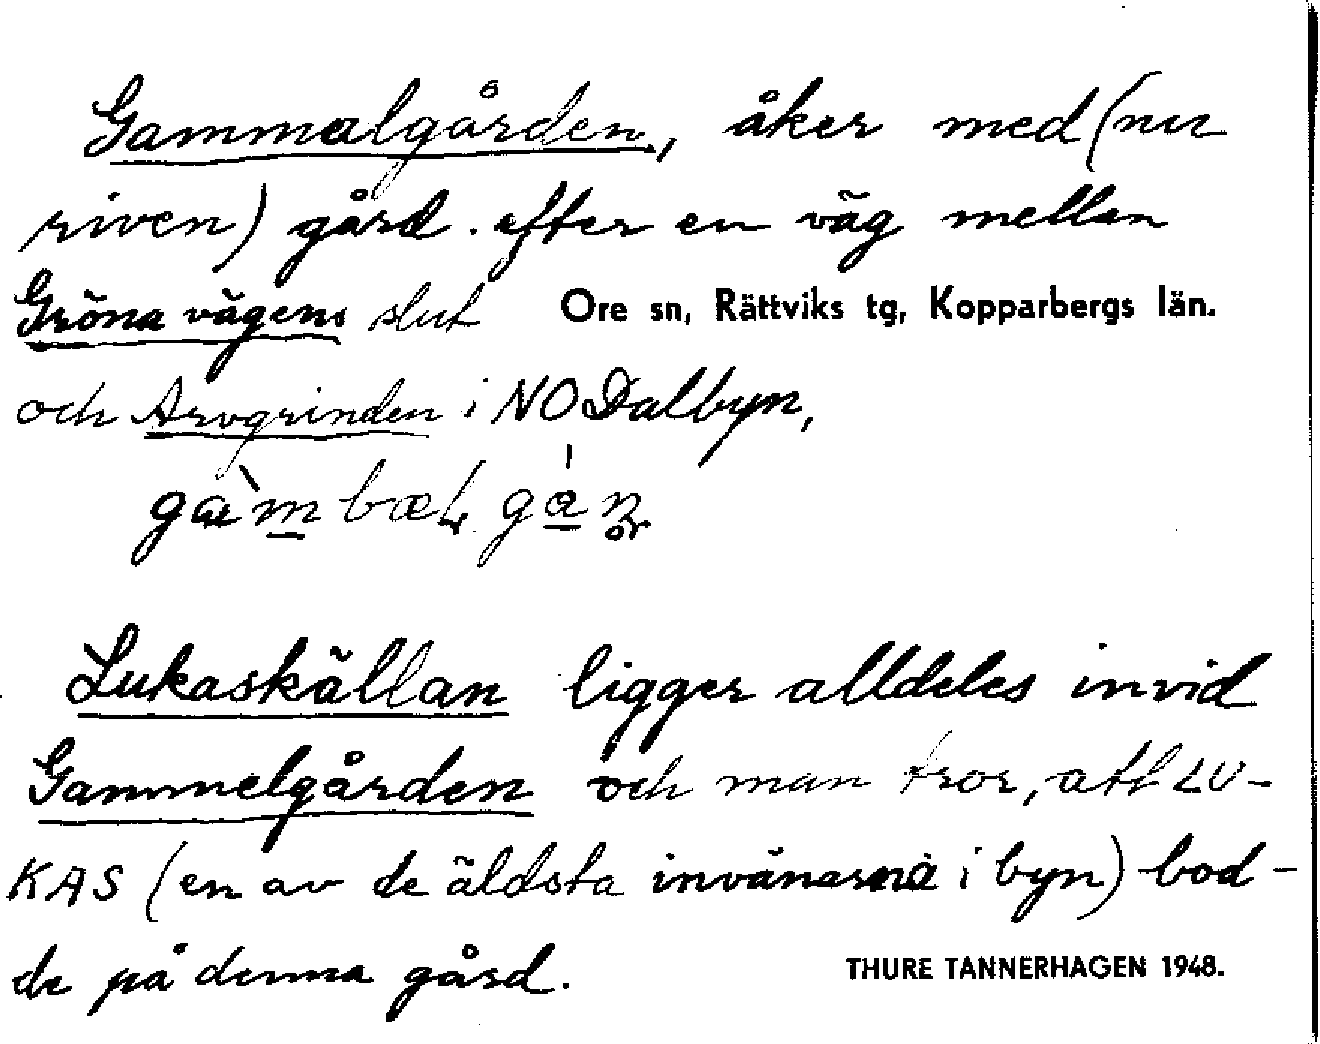 Gammalgården, åker med (nu
riven) gård. efter en väg mellan
Gröna vägens slut Ore sn, Rättviks tg, Kopparbergs län.
och Arvgrinden i NO Dalbyn,
Lukaskällan ligger alldeles invid
Gammelgården och man tror, att LU-
KAS (en av de äldsta invånarna i byn) bod-
de på denna gård.
THURE TANNERHAGEN 1948.